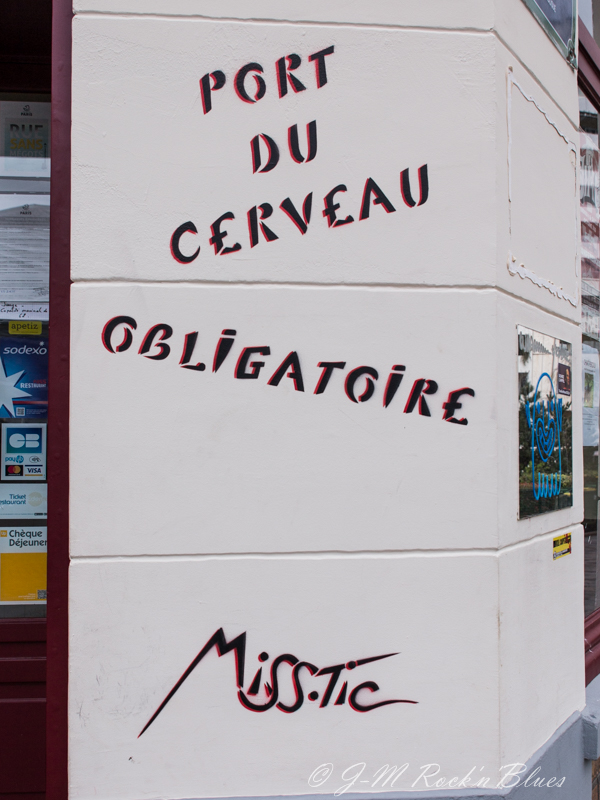 PORT
DU
CERVEAU
OBLIGATOIRE
MiSS.TiC
RUE
apetiz
sodexo
CB
VISA
Ticket
restaurant
Chèque
Déjeuner
© J-M Rock'n Blues